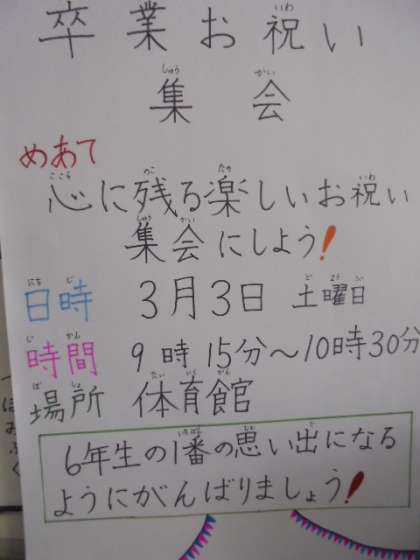 卒業お祝い
集会
めあて
心に残る楽しいお祝い
集会にしよう!
日時 3月3日 土曜日
時間 9時15分～10時30分
場所 体育館
6年生の1番の思い出になる
ようにがんばりましょう!